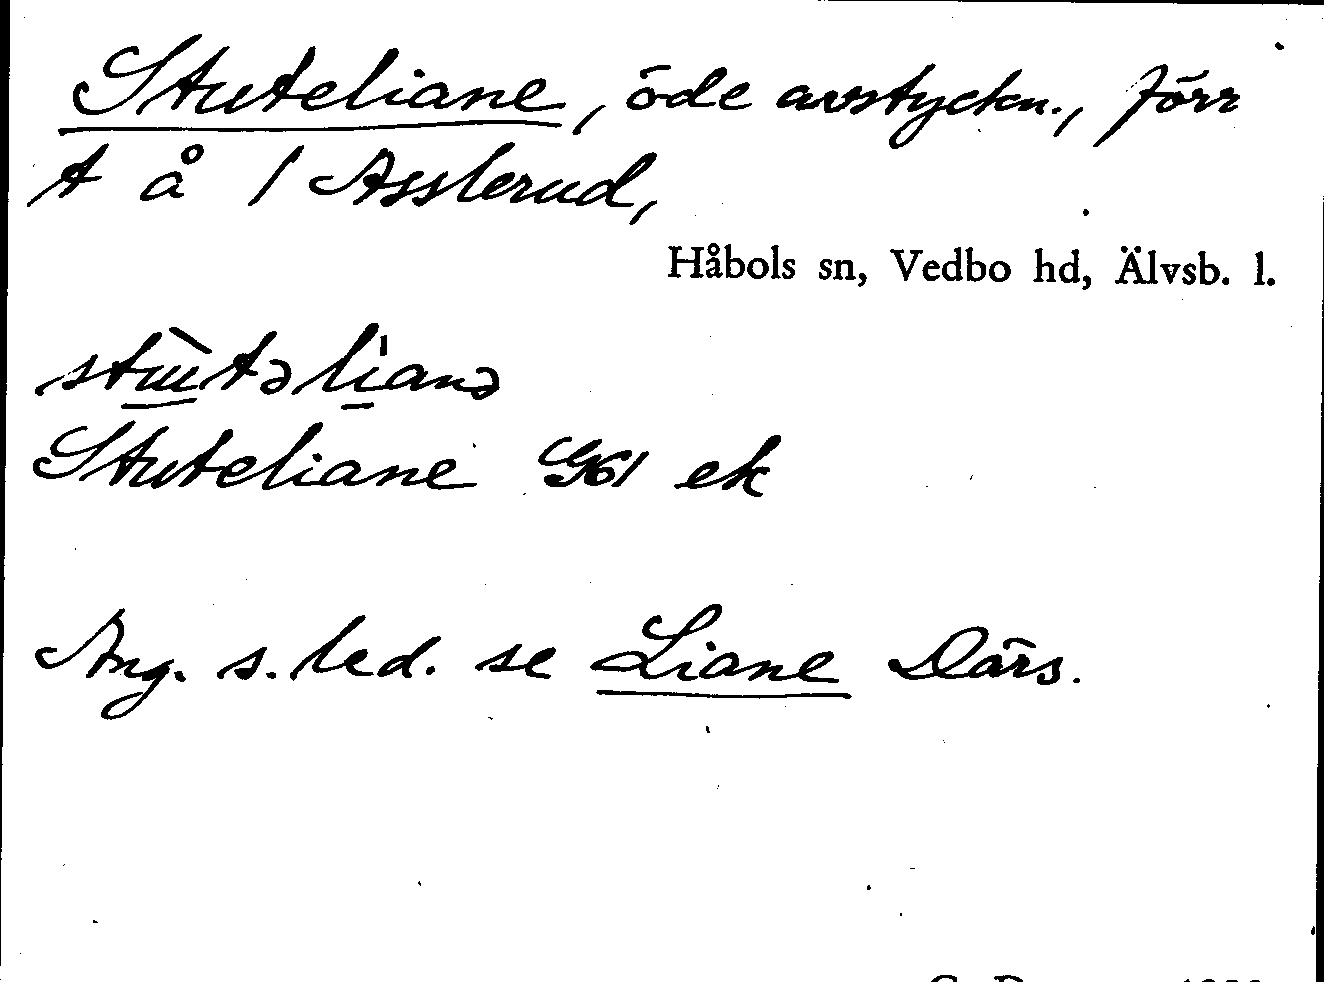 Stuteliane, öde avstyckn., förr
t å 1 Asslerud,
Håbols sn, Vedbo hd, Älvsb. l.
Stuteliane G61 ek
Ang. s. led. se Liane Därs.